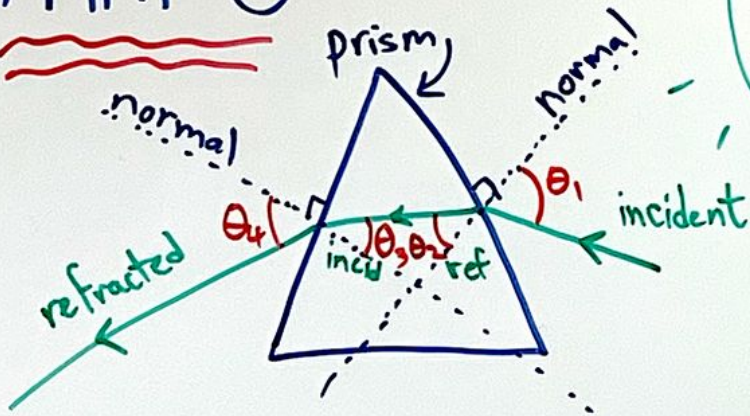 prism
normal
normal
θ₁
incident
θ₄
θ₃
θ₂
incid
ref
refracted